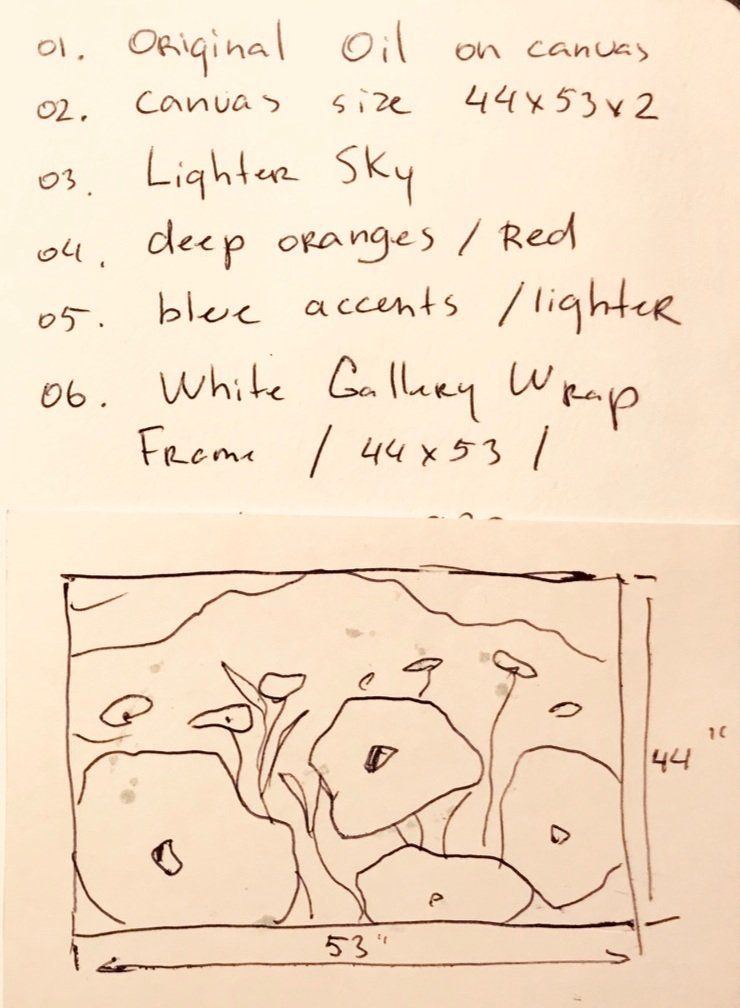 01. Original Oil on canvas
02. canvas size 44x53x2
03. Lighter Sky
04. deep oranges / Red
05. blue accents / lighter
06. White Gallery Wrap
Frame / 44x53 /
44"
53"